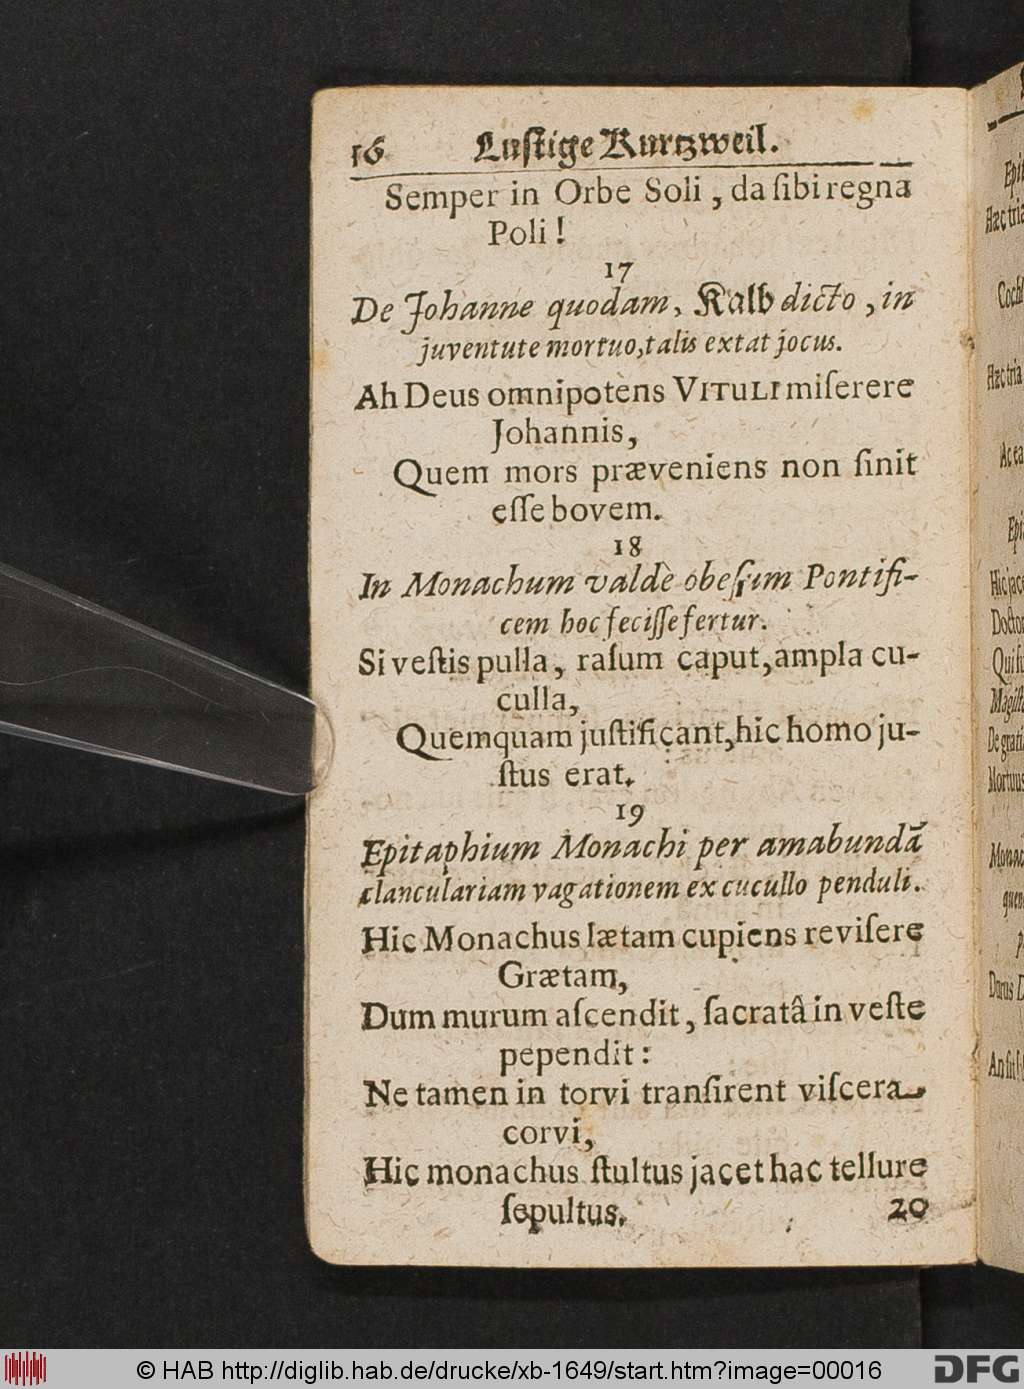 16 Lustige Kurtzweil.
Semper in Orbe Soli, da ſibi regna
Poli!
17
De Johanne quodam, Kalb dicto, in
juventute mortuo, talis extat jocus.
Ah Deus omnipotens VITULI miſerere
Johannis,
Quem mors præveniens non ſinit
eſſe bovem.
18
In Monachum valdè obeſum Pontifi-
cem hoc feciſſe fertur.
Si veſtis pulla, raſum caput, ampla cu-
culla,
Quemquam juſtificant, hic homo ju-
ſtus erat.
19
Epitaphium Monachi per amabundã
clanculariam vagationem ex cucullo penduli.
Hic Monachus lætam cupiens reviſere
Grætam,
Dum murum aſcendit, ſacratâ in veſte
pependit:
Ne tamen in torvi tranſirent viſcera
corvi,
Hic monachus ſtultus jacet hac tellure
ſepultus.
20
Hæc tria
Hæc tria
Hic jace
Doctor
Mortuus
© HAB http://diglib.hab.de/drucke/xb-1649/start.htm?image=00016
DFG